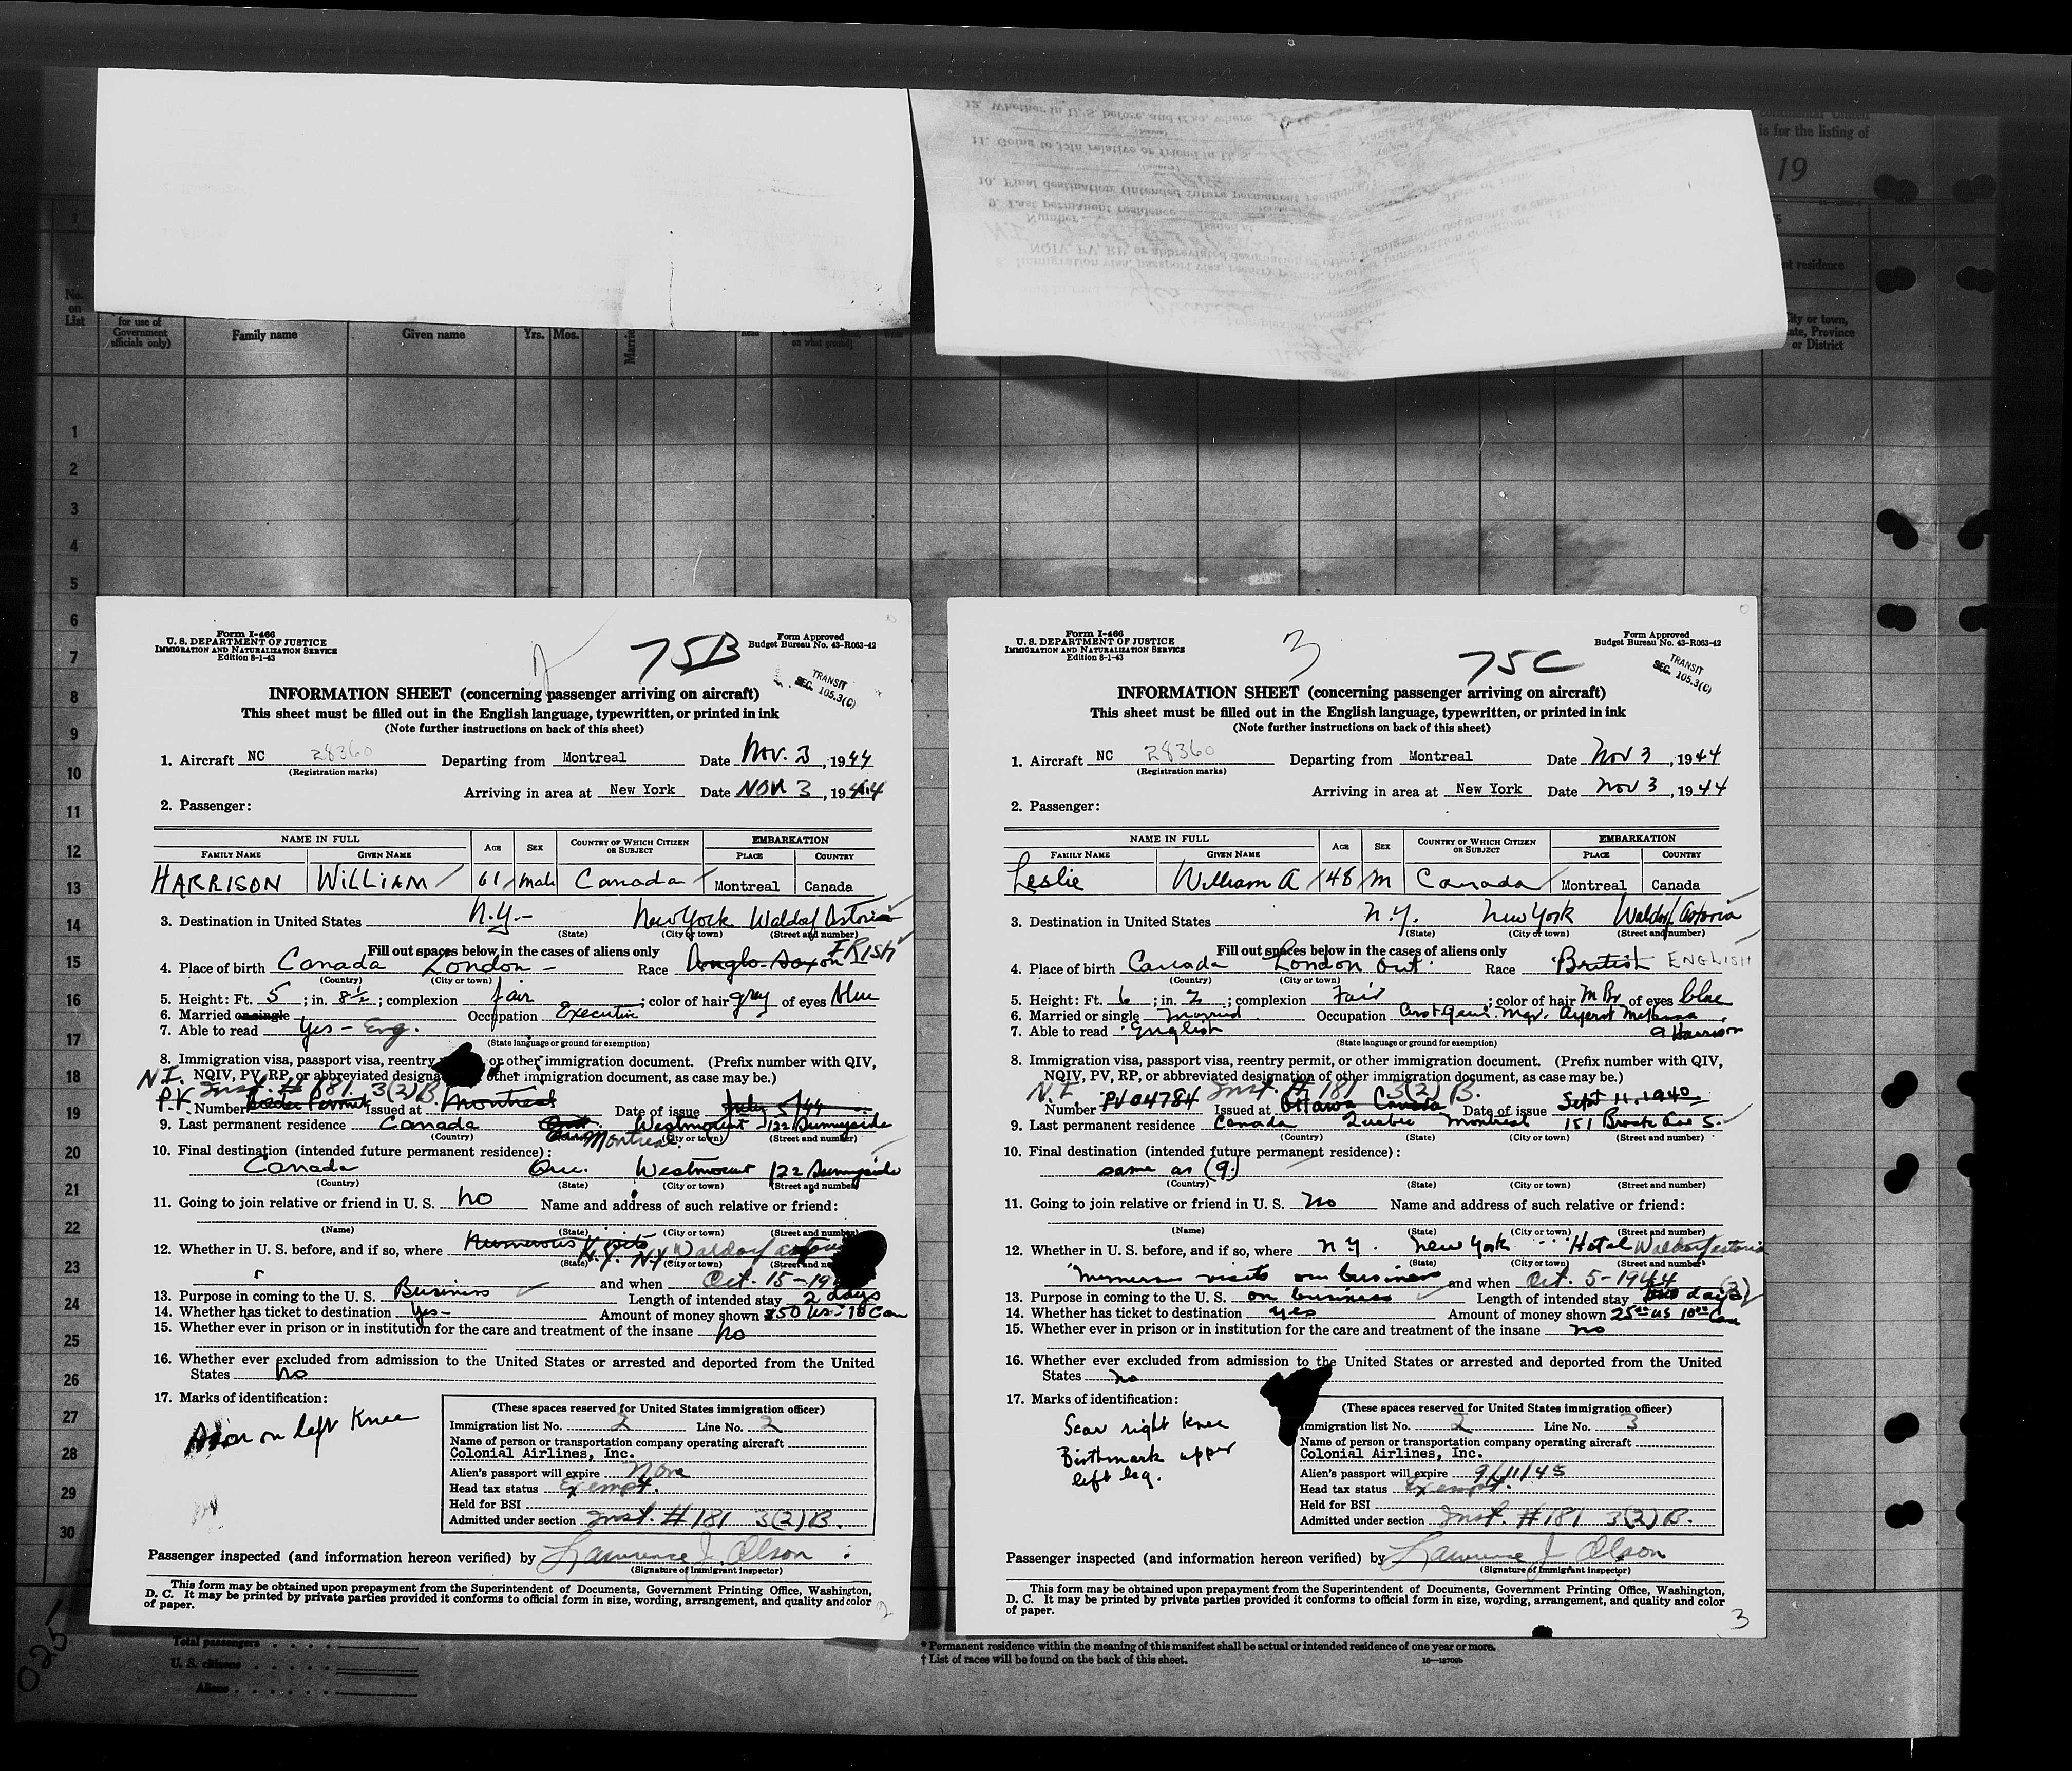 continental United
is for the listing of
19
nt residence
No. on List
for use of Government officials only)
Family name
Given name
Yrs.
Mos.
Married
on what ground)
City or town, State, Province or District
1
2
3
4
5
6
7
8
9
10
11
12
13
14
15
16
17
18
19
20
21
22
23
24
25
26
27
28
29
30
Form I-466
U. S. DEPARTMENT OF JUSTICE
IMMIGRATION AND NATURALIZATION SERVICE
Edition 8-1-43
2
75B
Form Approved
Budget Bureau No. 43-R063-42
TRANSIT
SEC. 105.3(C)
INFORMATION SHEET (concerning passenger arriving on aircraft)
This sheet must be filled out in the English language, typewritten, or printed in ink
(Note further instructions on back of this sheet)
1. Aircraft NC 28360 Departing from Montreal Date Nov. 3, 1944
(Registration marks)
Arriving in area at New York Date NOV 3, 1944
2. Passenger:
NAME IN FULL AGE SEX COUNTRY OF WHICH CITIZEN OR SUBJECT EMBARKATION
FAMILY NAME GIVEN NAME PLACE COUNTRY
HARRISON WILLIAM 61 Male Canada Montreal Canada
3. Destination in United States N.Y. New York Waldorf Astoria
(State) (City or town) (Street and number)
Fill out spaces below in the cases of aliens only
4. Place of birth Canada London Race Anglo-Saxon IRISH
(Country) (City or town)
5. Height: Ft. 5; in. 8½; complexion fair; color of hair gray of eyes blue
6. Married or single Occupation Executive
7. Able to read Yes - Eng.
(State language or ground for exemption)
8. Immigration visa, passport visa, reentry or other immigration document. (Prefix number with QIV,
NQIV, PV, RP, or abbreviated designa other immigration document, as case may be.)
N.I. Inst. # 181 3(2)B.
P.V. Number Border Permit Issued at Montreal Date of issue July 5/44
9. Last permanent residence Canada Montreal Westmount 122 Sunnyside
(Country) (City or town) (Street and number)
10. Final destination (intended future permanent residence):
Canada Que. Westmount 122 Sunnyside
(Country) (State) (City or town) (Street and number)
11. Going to join relative or friend in U. S. no Name and address of such relative or friend:
(Name) (State) (City or town) (Street and number)
12. Whether in U. S. before, and if so, where Numerous Visits N.Y. NY Waldorf Astoria
(State) (City or town) (Street and n
and when Oct. 15-19
13. Purpose in coming to the U. S. Business Length of intended stay 2 days
14. Whether has ticket to destination Yes- Amount of money shown $50 US- 10 Can
15. Whether ever in prison or in institution for the care and treatment of the insane No
16. Whether ever excluded from admission to the United States or arrested and deported from the United
States No
17. Marks of identification:
on left Knee
(These spaces reserved for United States immigration officer)
Immigration list No. 2 Line No. 2
Name of person or transportation company operating aircraft
Colonial Airlines, Inc.
Alien's passport will expire None
Head tax status Exempt.
Held for BSI
Admitted under section Inst. # 181 3(2)B.
Passenger inspected (and information hereon verified) by Lawrence J. Olson
(Signature of Immigrant Inspector)
This form may be obtained upon prepayment from the Superintendent of Documents, Government Printing Office, Washington,
D. C. It may be printed by private parties provided it conforms to official form in size, wording, arrangement, and quality and color
of paper.
2
Form I-466
U. S. DEPARTMENT OF JUSTICE
IMMIGRATION AND NATURALIZATION SERVICE
Edition 8-1-43
3
75C
Form Approved
Budget Bureau No. 43-R063-42
TRANSIT
SEC. 105.3(C)
INFORMATION SHEET (concerning passenger arriving on aircraft)
This sheet must be filled out in the English language, typewritten, or printed in ink
(Note further instructions on back of this sheet)
1. Aircraft NC 28360 Departing from Montreal Date Nov 3, 1944
(Registration marks)
Arriving in area at New York Date Nov 3, 1944
2. Passenger:
NAME IN FULL AGE SEX COUNTRY OF WHICH CITIZEN OR SUBJECT EMBARKATION
FAMILY NAME GIVEN NAME PLACE COUNTRY
Leslie William A 48 M Canada Montreal Canada
3. Destination in United States N.Y. New York Waldorf Astoria
(State) (City or town) (Street and number)
Fill out spaces below in the cases of aliens only
4. Place of birth Canada London Ont Race British ENGLISH
(Country) (City or town)
5. Height: Ft. 6; in. 2; complexion Fair; color of hair M Br of eyes blue
6. Married or single Married Occupation Asst Genl. Mgr. Ayerst McKenna
7. Able to read English & Harrison
(State language or ground for exemption)
8. Immigration visa, passport visa, reentry permit, or other immigration document. (Prefix number with QIV,
NQIV, PV, RP, or abbreviated designation of other immigration document, as case may be.)
N.I. Inst. # 181 3(2)B.
Number PV04784 Issued at Ottawa Canada Date of issue Sept 11, 1940
9. Last permanent residence Canada Quebec Montreal 151 Brock Ave S.
(Country) (State) (City or town) (Street and number)
10. Final destination (intended future permanent residence):
same as (9.)
(Country) (State) (City or town) (Street and number)
11. Going to join relative or friend in U. S. no Name and address of such relative or friend:
(Name) (State) (City or town) (Street and number)
12. Whether in U. S. before, and if so, where N.Y. New York Hotel Waldorf Astoria
(State) (City or town) (Street and number)
Numerous visits on business and when Oct. 5-1944
13. Purpose in coming to the U. S. on business Length of intended stay two days (2)
14. Whether has ticket to destination yes Amount of money shown 25.00 US 10.00 Can
15. Whether ever in prison or in institution for the care and treatment of the insane no
16. Whether ever excluded from admission to the United States or arrested and deported from the United
States no
17. Marks of identification:
Scar right knee
Birthmark upper
left leg.
(These spaces reserved for United States immigration officer)
Immigration list No. 2 Line No. 3
Name of person or transportation company operating aircraft
Colonial Airlines, Inc.
Alien's passport will expire 9/11/45
Head tax status Exempt.
Held for BSI
Admitted under section Inst. # 181 3(2)B.
Passenger inspected (and information hereon verified) by Lawrence J Olson
(Signature of Immigrant Inspector)
This form may be obtained upon prepayment from the Superintendent of Documents, Government Printing Office, Washington,
D. C. It may be printed by private parties provided it conforms to official form in size, wording, arrangement, and quality and color
of paper.
3
025
Total passengers
U. S. citizens
Aliens
* Permanent residence within the meaning of this manifest shall be actual or intended residence of one year or more.
† List of races will be found on the back of this sheet.
16—18709b